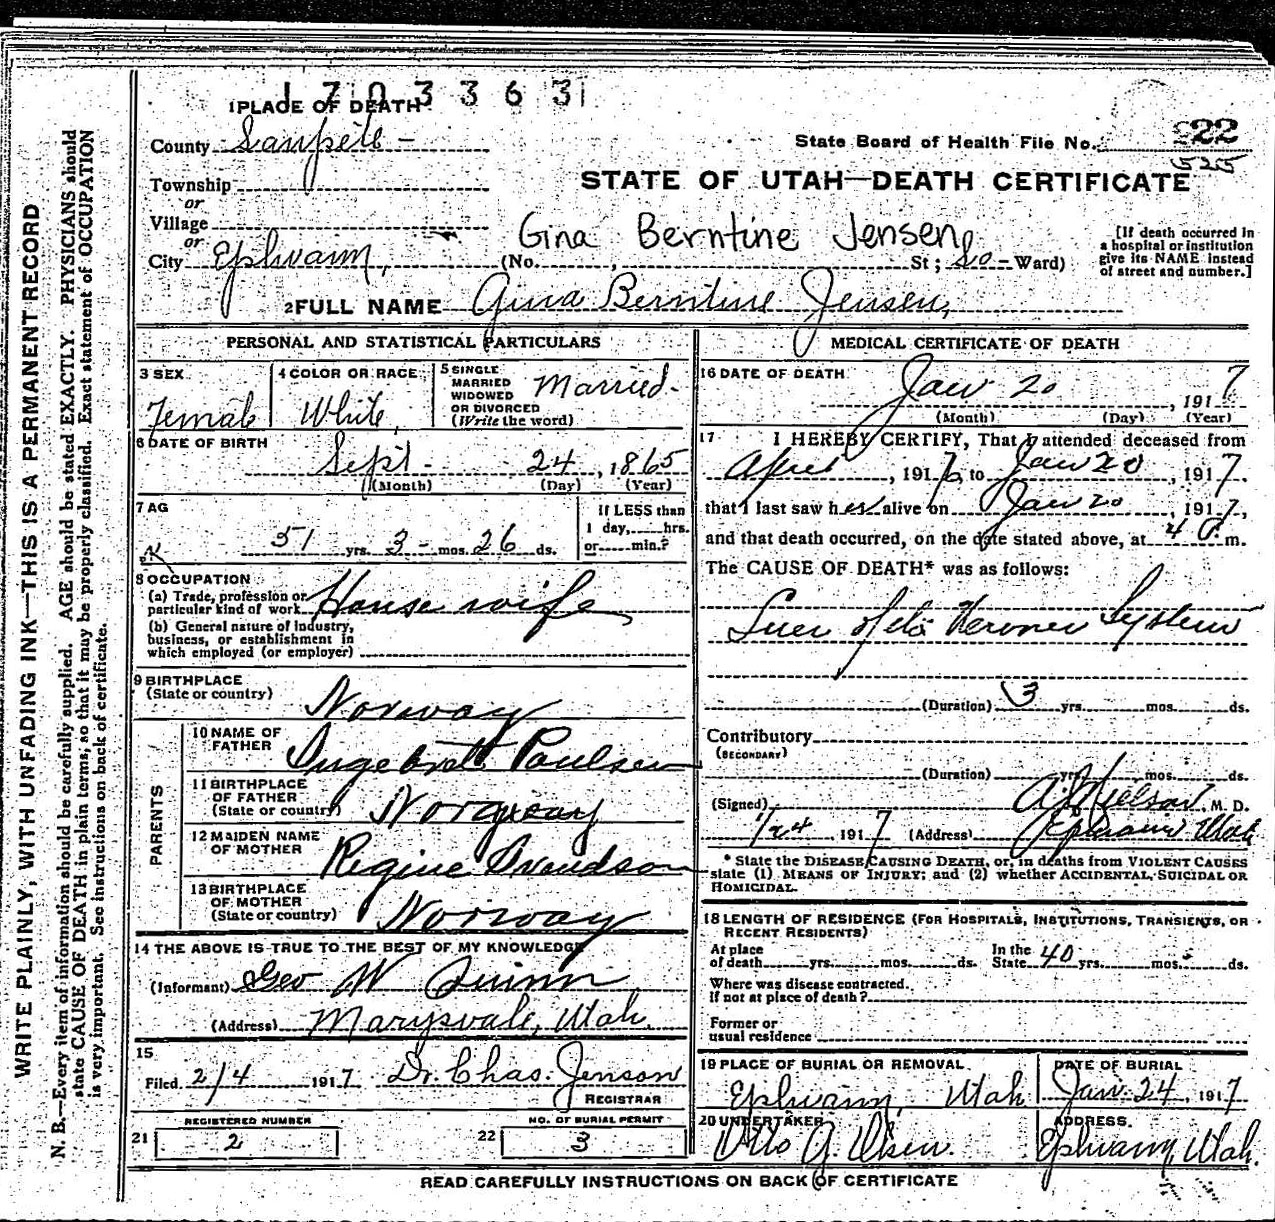 WRITE PLAINLY, WITH UNFADING INK—THIS IS A PERMANENT RECORD
N. B.—Every item of information should be carefully supplied. AGE should be stated EXACTLY. PHYSICIANS should
state CAUSE OF DEATH in plain terms, so that it may be properly classified. Exact statement of OCCUPATION
is very important. See instructions on back of certificate.
1703363
1 PLACE OF DEATH
County Sanpete
State Board of Health File No. 22
525
Township
or
Village
or
STATE OF UTAH—DEATH CERTIFICATE
Gina Berntine Jensen
City Ephraim, (No. St; So Ward)
[If death occurred in
a hospital or institution
give its NAME instead
of street and number.]
2 FULL NAME Gina Berntine Jensen,
PERSONAL AND STATISTICAL PARTICULARS
3 SEX
Female
4 COLOR OR RACE
White
5 SINGLE
MARRIED
WIDOWED
OR DIVORCED
(Write the word)
Married
6 DATE OF BIRTH
Sept 24, 1865
(Month) (Day) (Year)
7 AG
51 yrs. 3 mos. 26 ds.
If LESS than
1 day, hrs.
or min.?
8 OCCUPATION
(a) Trade, profession or
particular kind of work House wife
(b) General nature of industry,
business, or establishment in
which employed (or employer)
9 BIRTHPLACE
(State or country)
Norway
PARENTS
10 NAME OF
FATHER
Ingebret Paulsen
11 BIRTHPLACE
OF FATHER
(State or country)
Norway
12 MAIDEN NAME
OF MOTHER
Regine Svendson
13 BIRTHPLACE
OF MOTHER
(State or country)
Norway
14 THE ABOVE IS TRUE TO THE BEST OF MY KNOWLEDGE
(Informant) Geo W Quinn
(Address) Marysvale, Utah.
15
Filed 2/4 1917 Dr. Chas. Jenson
REGISTRAR
REGISTERED NUMBER
21 2
NO. OF BURIAL PERMIT
22 3
MEDICAL CERTIFICATE OF DEATH
16 DATE OF DEATH
Jan 20, 1917
(Month) (Day) (Year)
17 I HEREBY CERTIFY, That I attended deceased from
April, 1916, to Jan 20 1917
that I last saw her alive on Jan 20, 1917,
and that death occurred, on the date stated above, at 4 P. m.
The CAUSE OF DEATH* was as follows:
System
(Duration) 3 yrs. mos. ds.
Contributory
(SECONDARY)
(Duration) yrs. mos. ds.
(Signed) Nielson, M. D.
1/24, 1917 (Address) Ephraim Utah
* State the DISEASE CAUSING DEATH, or, in deaths from VIOLENT CAUSES
state (1) MEANS OF INJURY; and (2) whether ACCIDENTAL, SUICIDAL OR
HOMICIDAL.
18 LENGTH OF RESIDENCE (FOR HOSPITALS, INSTITUTIONS, TRANSIENTS, OR
RECENT RESIDENTS)
At place
of death yrs. mos. ds.
In the
State 40 yrs. mos. ds.
Where was disease contracted
if not at place of death?
Former or
usual residence
19 PLACE OF BURIAL OR REMOVAL
Ephraim, Utah
DATE OF BURIAL
Jan. 24, 1917
20 UNDERTAKER
Otto A. Olsen.
ADDRESS.
Ephraim, Utah.
READ CAREFULLY INSTRUCTIONS ON BACK OF CERTIFICATE